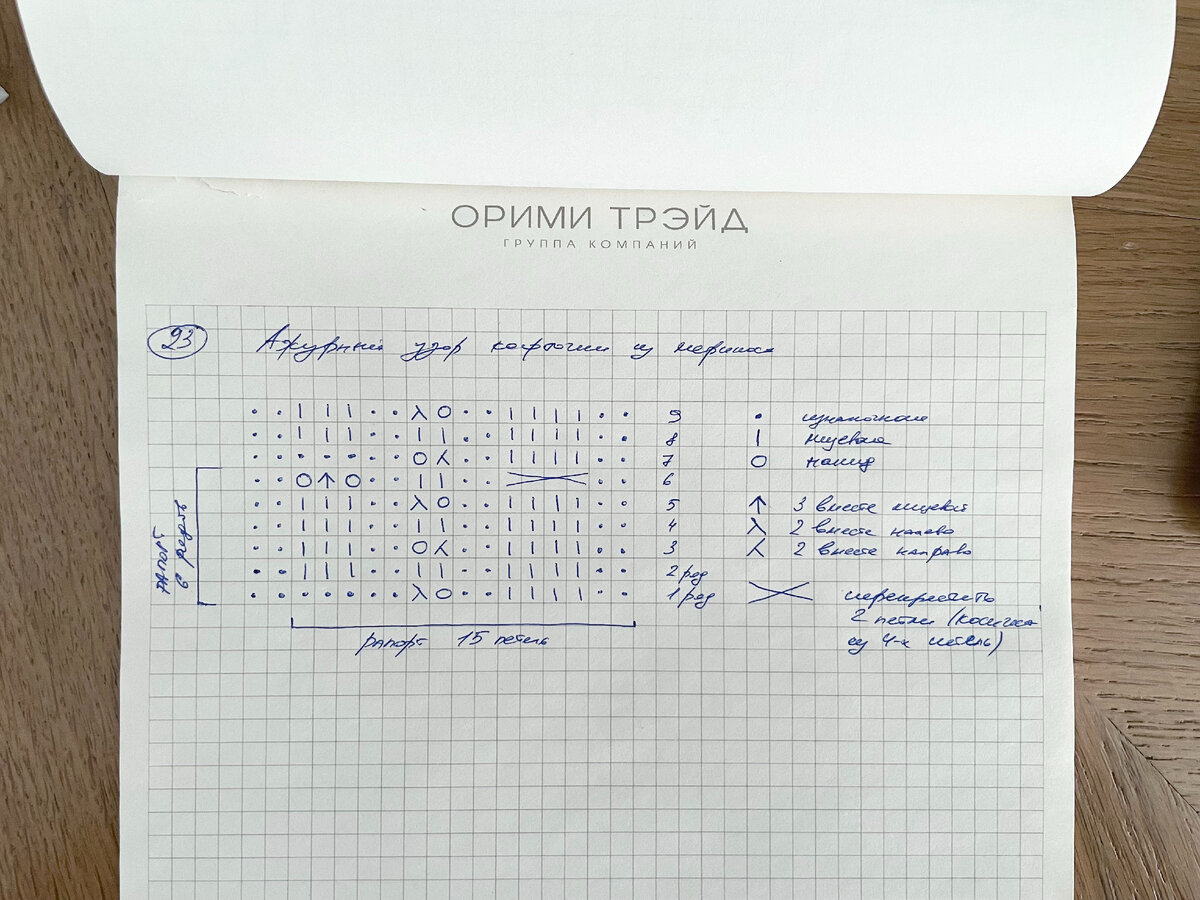 ОРИМИ ТРЭЙД
ГРУППА КОМПАНИЙ
23 Ажурный узор кофточки из мериноса
• • | | | • • λ O • • | | | | • • 9 • изнаночная
• • | | | • • | | • • | | | | • • 8 | лицевая
• • • • • • • O ⅄ • • | | | | • • 7 O накид
• • O ↑ O • • | | • • >< • • 6
• • | | | • • λ O • • | | | | • • 5 ↑ 3 вместе лицевой
• • | | | • • | | • • | | | | • • 4 λ 2 вместе налево
• • | | | • • O ⅄ • • | | | | • • 3 ⅄ 2 вместе направо
• • | | | • • | | • • | | | | • • 2 ряд
• • • • • • • λ O • • | | | | • • 1 ряд >< перекрестить
2 петли (косичка
из 4-х петель)
раппорт
6 рядов
рапорт 15 петель